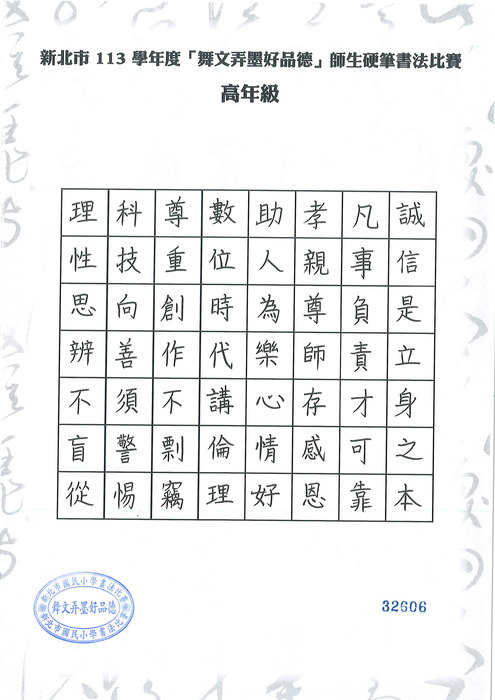 新北市 113 學年度「舞文弄墨好品德」師生硬筆書法比賽
高年級
誠信是立身之本
凡事負責才可靠
孝親尊師存感恩
助人為樂心情好
數位時代講倫理
尊重創作不剽竊
科技向善須警惕
理性思辨不盲從
新北市國民小學書法比賽
舞文弄墨好品德
新北市國民小學書法比賽
32606